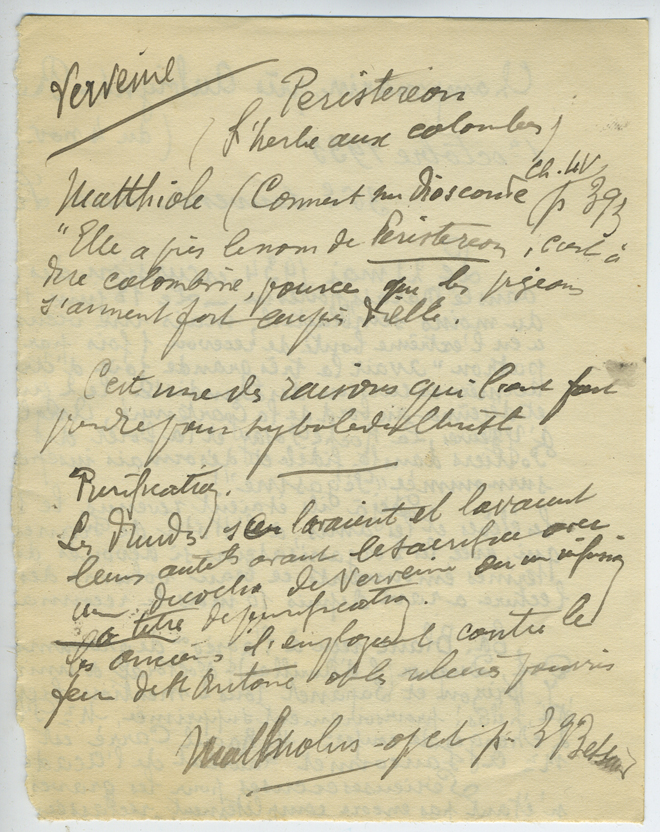 Verveine
Peristereon
(L'herbe aux colombes)
Matthiole (Comment sur Dioscoride ch. LV, p 393
"Elle a pris le nom de Peristereon, c'est à
dire colombine, pource que les pigeons
s'aiment fort auprès d'elle.
C'est une des raisons qui l'ont fait
prendre pour symbole du Christ
Purification.
Les Druides s'en lavaient et lavaient
leurs autels avant le sacrifice avec
une décoction de Verveine ou un infusion
à titre de purification.
les anciens l'employent contre le
feu de St Antoine et les ulcères pourris
Matthiolus - op cit p. 393 et suiv